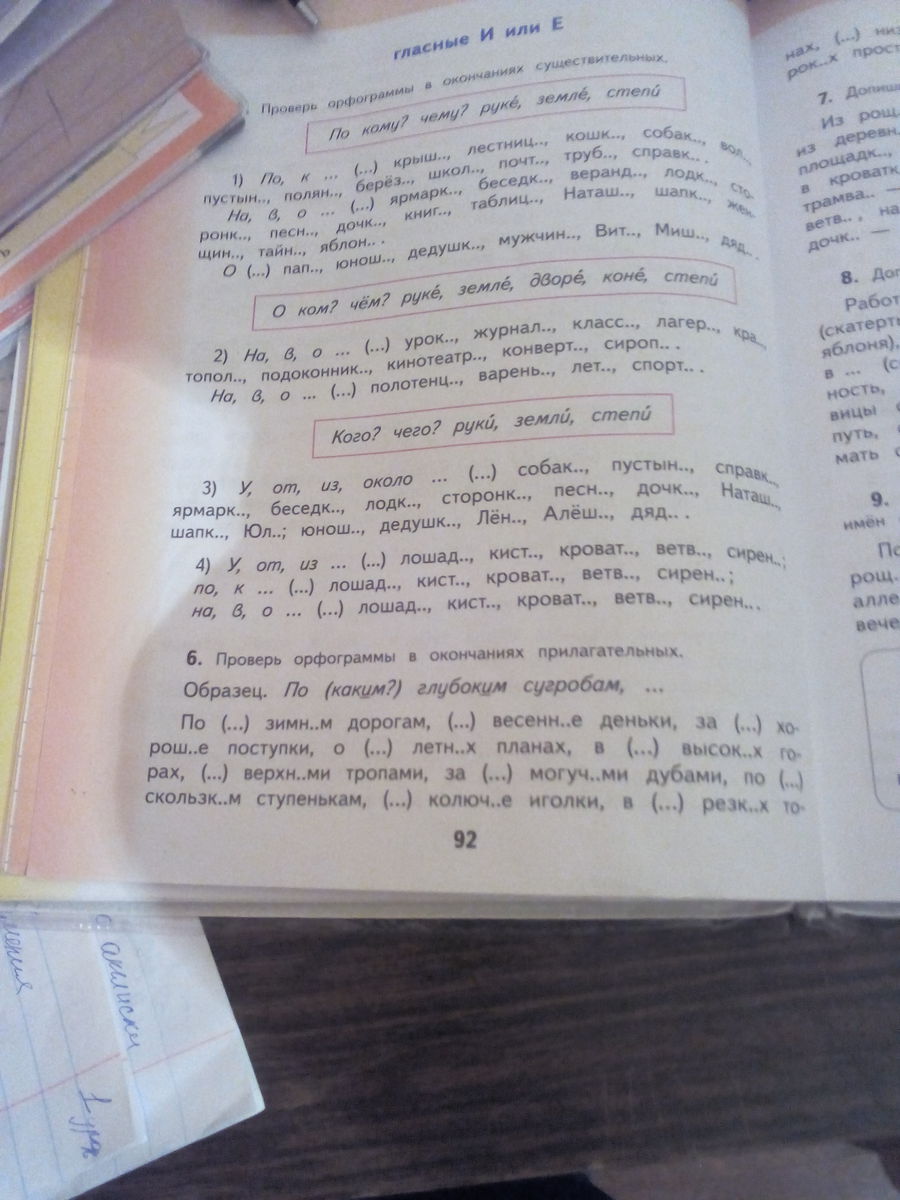 гласные И или Е
Проверь орфограммы в окончаниях существительных.
По кому? чему? руке́, земле́, степи́
1) По, к ... (...) крыш.., лестниц.., кошк.., собак.., вол..,
пустын.., полян.., берёз.., школ.., почт.., труб.., справк.. .
На, в, о ... (...) ярмарк.., беседк.., веранд.., лодк.., сто-
ронк.., песн.., дочк.., книг.., таблиц.., Наташ.., шапк.., жен-
щин.., тайн.., яблон.. .
О (...) пап.., юнош.., дедушк.., мужчин.., Вит.., Миш.., дяд.. .
О ком? чём? руке́, земле́, дворе́, коне́, степи́
2) На, в, о ... (...) урок.., журнал.., класс.., лагер.., кра..,
топол.., подоконник.., кинотеатр.., конверт.., сироп.. .
На, в, о ... (...) полотенц.., варень.., лет.., спорт.. .
Кого? чего? руки́, земли́, степи́
3) У, от, из, около ... (...) собак.., пустын.., справк..,
ярмарк.., беседк.., лодк.., сторонк.., песн.., дочк.., Наташ..,
шапк.., Юл..; юнош.., дедушк.., Лён.., Алёш.., дяд.. .
4) У, от, из ... (...) лошад.., кист.., кроват.., ветв.., сирен..;
по, к ... (...) лошад.., кист.., кроват.., ветв.., сирен..;
на, в, о ... (...) лошад.., кист.., кроват.., ветв.., сирен.. .
6. Проверь орфограммы в окончаниях прилагательных.
Образец. По (каким?) глубоким сугробам, ...
По (...) зимн..м дорогам, (...) весенн..е деньки, за (...) хо-
рош..е поступки, о (...) летн..х планах, в (...) высок..х го-
рах, (...) верхн..ми тропами, за (...) могуч..ми дубами, по (...)
скользк..м ступенькам, (...) колюч..е иголки, в (...) резк..х то-
92
нах, (...) низ
рок..х прост
7. Допиш
Из рощ..
из деревн..
площадк..,
в кроватк
трамва.. —
ветв.., на
дочк.. —
8. Доп
Работ
(скатерть
яблоня),
в ... (с
ность,
вицы
путь,
мать с
9.
имён
По
рощ..
алле
вече
1 урк